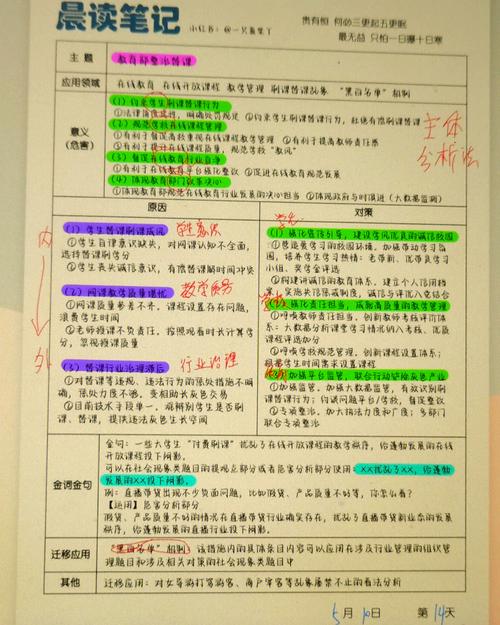 晨读笔记
小红书：@一只夏集丫
贵有恒 何必三更起五更眠
最无益 只怕一日曝十日寒
主题
教育部整治替课
应用领域
在线教育 在线开放课程 教学管理 刷课替课乱象 "黑白名单"机制
意义
(危害)
(1) 约束学生刷课替课行为
①法律 明确处罚规定 ②约束学生刷课替课行为，杜绝有偿刷课替课
(2) 规范学校在线课程管理
①有利于督促高校重视在线课程教学管理 ②有利于提高教师责任感
③有利于提升在线课程质量，规范学校"教风"
(3) 督促在线教育行业自净
①有利于在线教育平台强化整改 ②促进在线教育规范发展
(4) 体现教育部门政策决心
①体现教育部规范在线教育行业发展的决心担当 ②体现政府与时俱进（大数据监测）
主体
分析法
原因
对策
内
外
(1) 学生替课刷课成风
学生意识
①学生自律意识缺失，对网课认知不全面，
选择替课刷学分
②学生丧失诚信意识，有偿替课解时间冲突
(2) 网课教学质量堪忧
教学质量
①网课质量参差不齐，课程设置存在问题，
浪费学生时间
②老师授课不负责任，按照观看时长计算学
分，忽视授课质量
(3) 替课行业治理滞后
行业治理
①对替课等违规、违法行为的惩处措施不明
确，惩处力度不够，变相助长灰色交易
②目前技术手段单一，难辨别学生是否刷
课、替课，提供违法灰色生长空间
学生
(1) 强化宣传引导，建设学风优良的诚信校园
①营造爱学习的校园环境，加强带动学习氛
围，提升学生学习热情：老带新、优带良学习
小组、奖学金评选
②构建讲诚信的教育体系，建立个人信用档
案，实施失信惩戒制度，诚信与评优入党结合
强化责任担当，成就高质量的教学管理
①呼唤教师责任担当，创新教师考核评价体
系：大数据分析课堂学习情况纳入考核、优质
课程评选加分
②呼唤学校规范管理，创新课程设置体系：
根据学生时间需求设置课程
加强平台监管，联合行动铲除灰色产业
①加强监管，加强大数据监管，有效识别刷
课替课行为；约谈问题平台/学校，督促整改
②专项整治，加大执法力度和广度；多部门
联合专项整治
金词金句
金句：一些大学生"付费刷课"扰乱了在线开放课程的教学秩序，给蓬勃发展的在线
开放课程投下阴影。
可以在社会现象类题目的提观点部分或者危害分析部分使用：XX扰乱了XX，给蓬勃
发展的XX投下阴影。
例：直播带货出现不少负面问题，比如假货、产品质量不好等，你怎么看？
【运用】危害分析部分
假货、产品质量不好的情况在直播带货行业确实存在，扰乱了直播带货新业态的发展
秩序，给蓬勃发展的直播带货投下阴影。
迁移应用
"黑白名单"机制：该措施内的具体条目内容可以应用在涉及行业管理的组织管
理题目和涉及相关对策的社会现象类题目中
其他
迁移应用：对女导游打骂游客、商户宰客等乱象屡禁不止的看法分析
5月10日 第14天